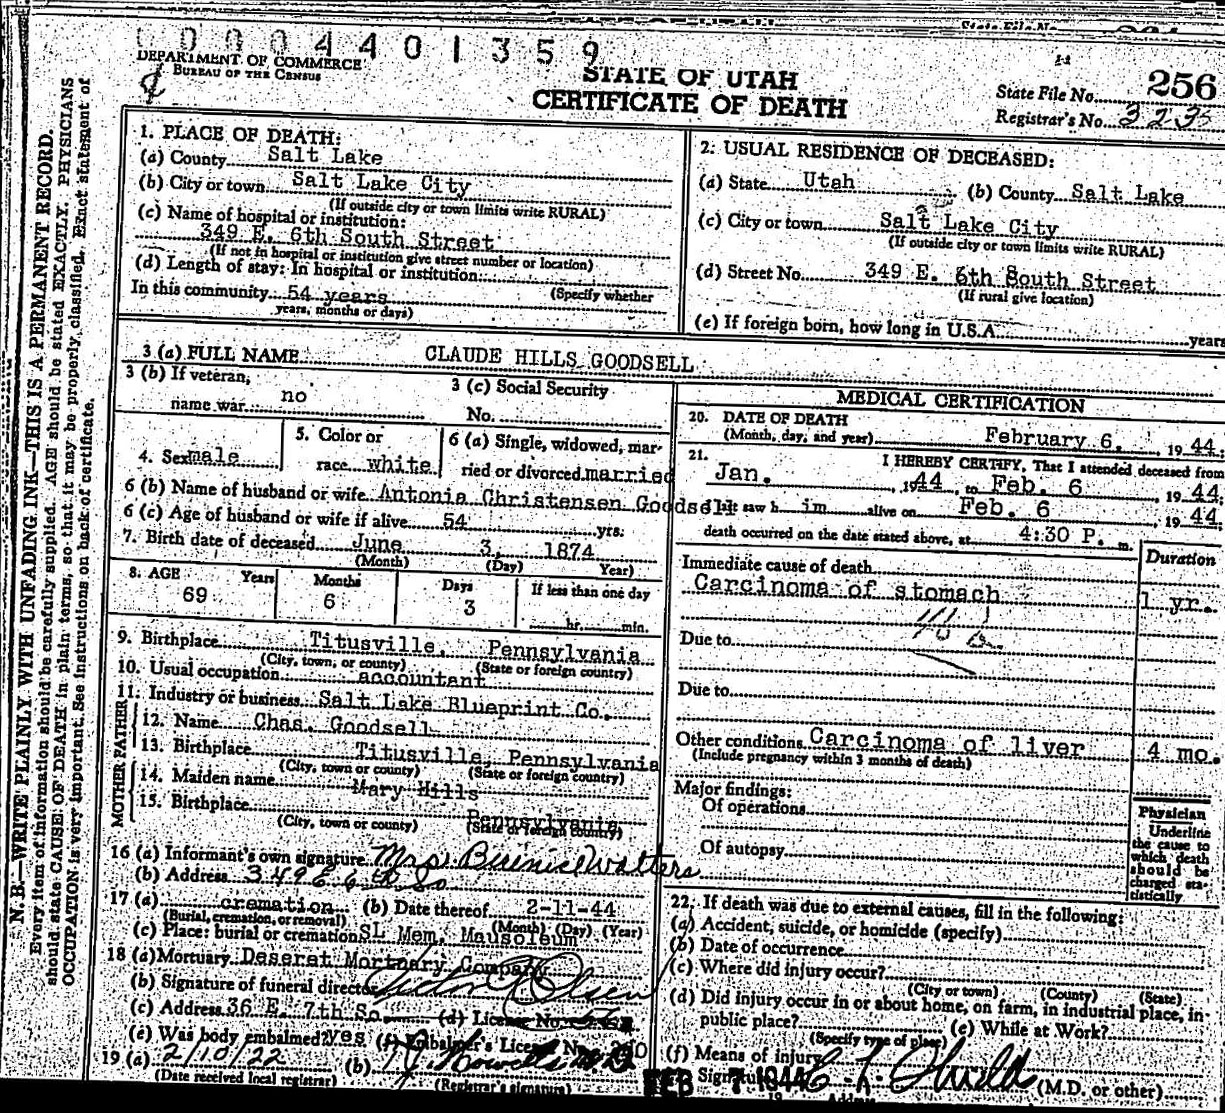 00004401359
DEPARTMENT OF COMMERCE
BUREAU OF THE CENSUS
STATE OF UTAH
CERTIFICATE OF DEATH
State File No. 256
Registrar's No. 323
N. B.—WRITE PLAINLY WITH UNFADING INK—THIS IS A PERMANENT RECORD.
Every item of information should be carefully supplied. AGE should be stated EXACTLY. PHYSICIANS
should state CAUSE OF DEATH in plain terms, so that it may be properly classified. Exact statement of
OCCUPATION is very important. See instructions on back of certificate.
1. PLACE OF DEATH:
(a) County Salt Lake
(b) City or town Salt Lake City
(If outside city or town limits write RURAL)
(c) Name of hospital or institution:
349 E. 6th South Street
(If not in hospital or institution give street number or location)
(d) Length of stay: In hospital or institution
In this community 54 years (Specify whether
years, months or days)
2. USUAL RESIDENCE OF DECEASED:
(a) State Utah (b) County Salt Lake
(c) City or town Salt Lake City
(If outside city or town limits write RURAL)
(d) Street No. 349 E. 6th South Street
(If rural give location)
(e) If foreign born, how long in U.S.A. years
3 (a) FULL NAME CLAUDE HILLS GOODSELL
3 (b) If veteran,
name war no
3 (c) Social Security
No.
4. Sex male
5. Color or
race white
6 (a) Single, widowed, mar-
ried or divorced married
6 (b) Name of husband or wife Antonia Christensen Goodsell
6 (c) Age of husband or wife if alive 54 yrs.
7. Birth date of deceased June 3, 1874
(Month) (Day) Year)
8. AGE Years Months Days If less than one day
69 6 3 hr. min.
9. Birthplace Titusville, Pennsylvania
(City, town, or county) (State or foreign country)
10. Usual occupation accountant
11. Industry or business Salt Lake Blueprint Co.
FATHER
12. Name Chas. Goodsell
13. Birthplace Titusville, Pennsylvania
(City, town or county) (State or foreign country)
MOTHER
14. Maiden name Mary Hills
15. Birthplace Pennsylvania
(City, town or county) (State or foreign country)
16 (a) Informant's own signature Mrs. Burnice Walters
(b) Address 349 E 6th So
17 (a) cremation (b) Date thereof 2-11-44
(Burial, cremation, or removal) (Month) (Day) (Year)
(c) Place: burial or cremation SL Mem. Mausoleum
18 (a) Mortuary Deseret Mortuary Company
(b) Signature of funeral director Victor Olsen
(c) Address 36 E. 7th So. (d) License No.
(e) Was body embalmed? yes (f) Embalmer's License No.
19 (a) 2/10/22 (b)
(Date received local registrar) (Registrar's signature)
MEDICAL CERTIFICATION
20. DATE OF DEATH
(Month, day, and year) February 6, 1944
21. I HEREBY CERTIFY, That I attended deceased from
Jan. , 1944, to Feb. 6 , 1944
I last saw h im alive on Feb. 6 , 1944
death occurred on the date stated above, at 4:30 P. m.
Duration
Immediate cause of death
Carcinoma of stomach 1 yr.
Due to
Due to
Other conditions Carcinoma of liver 4 mo.
(Include pregnancy within 3 months of death)
Major findings:
Of operations
Of autopsy
Physician
Underline
the cause to
which death
should be
charged sta-
tistically
22. If death was due to external causes, fill in the following:
(a) Accident, suicide, or homicide (specify)
(b) Date of occurrence
(c) Where did injury occur?
(City or town) (County) (State)
(d) Did injury occur in or about home, on farm, in industrial place, in
public place? (e) While at Work?
(Specify type of place)
(f) Means of injury
FEB 7 1944 Signature (M.D. or other)